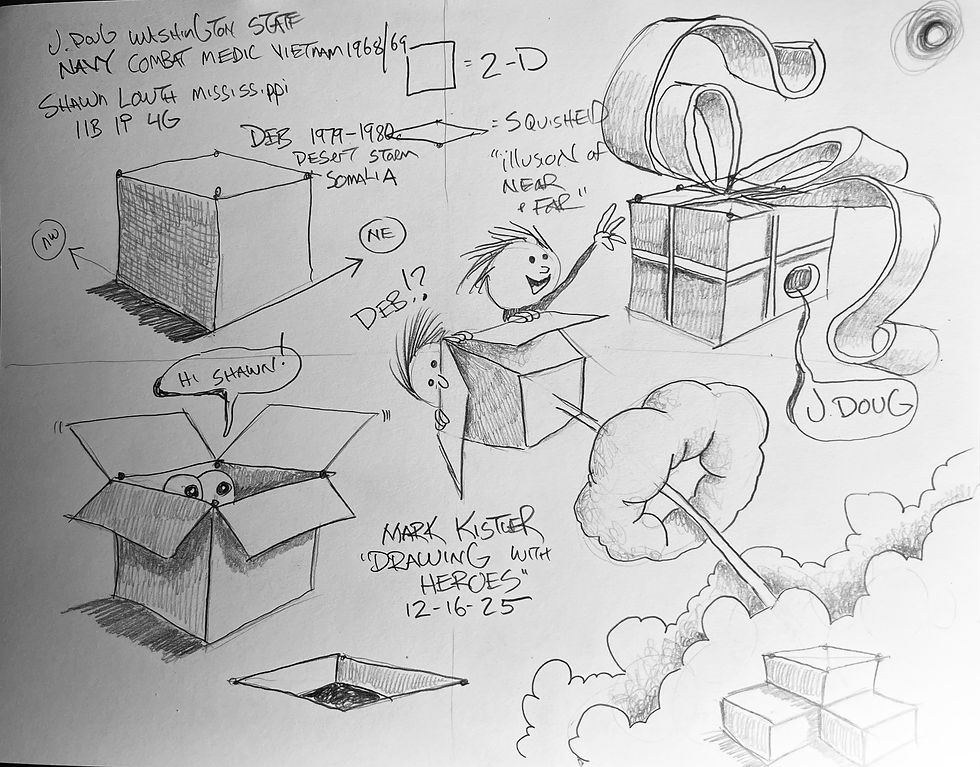 J. DOUG WASHINGTON STATE
NAVY COMBAT MEDIC VIETNAM 1968/69
SHAWN LOUTH MISSISSIPPI
11B 1P 4G
= 2-D
DEB 1979-1980
DESERT STORM
SOMALIA
= SQUISHED
"ILLUSION OF
NEAR
+ FAR"
NW
NE
DEB!?
HI SHAWN!
J. DOUG
MARK KISTLER
"DRAWING WITH
HEROES"
12-16-25